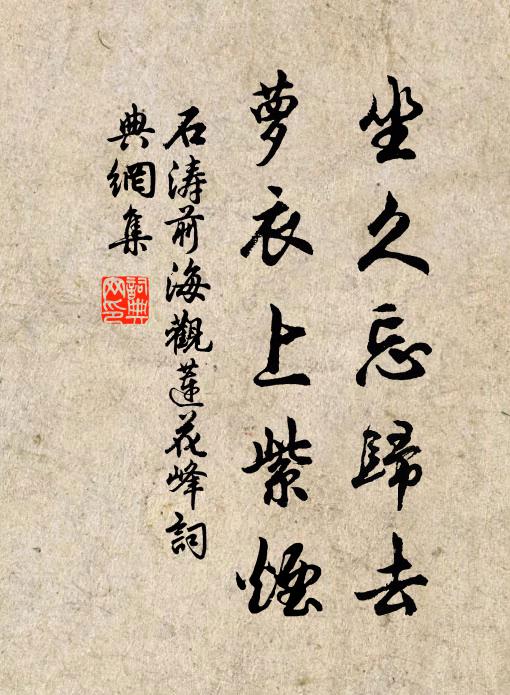 坐久忘歸去
夢衣上紫煙
石濤前海觀蓮花峰詞
典網集
詞典
网印